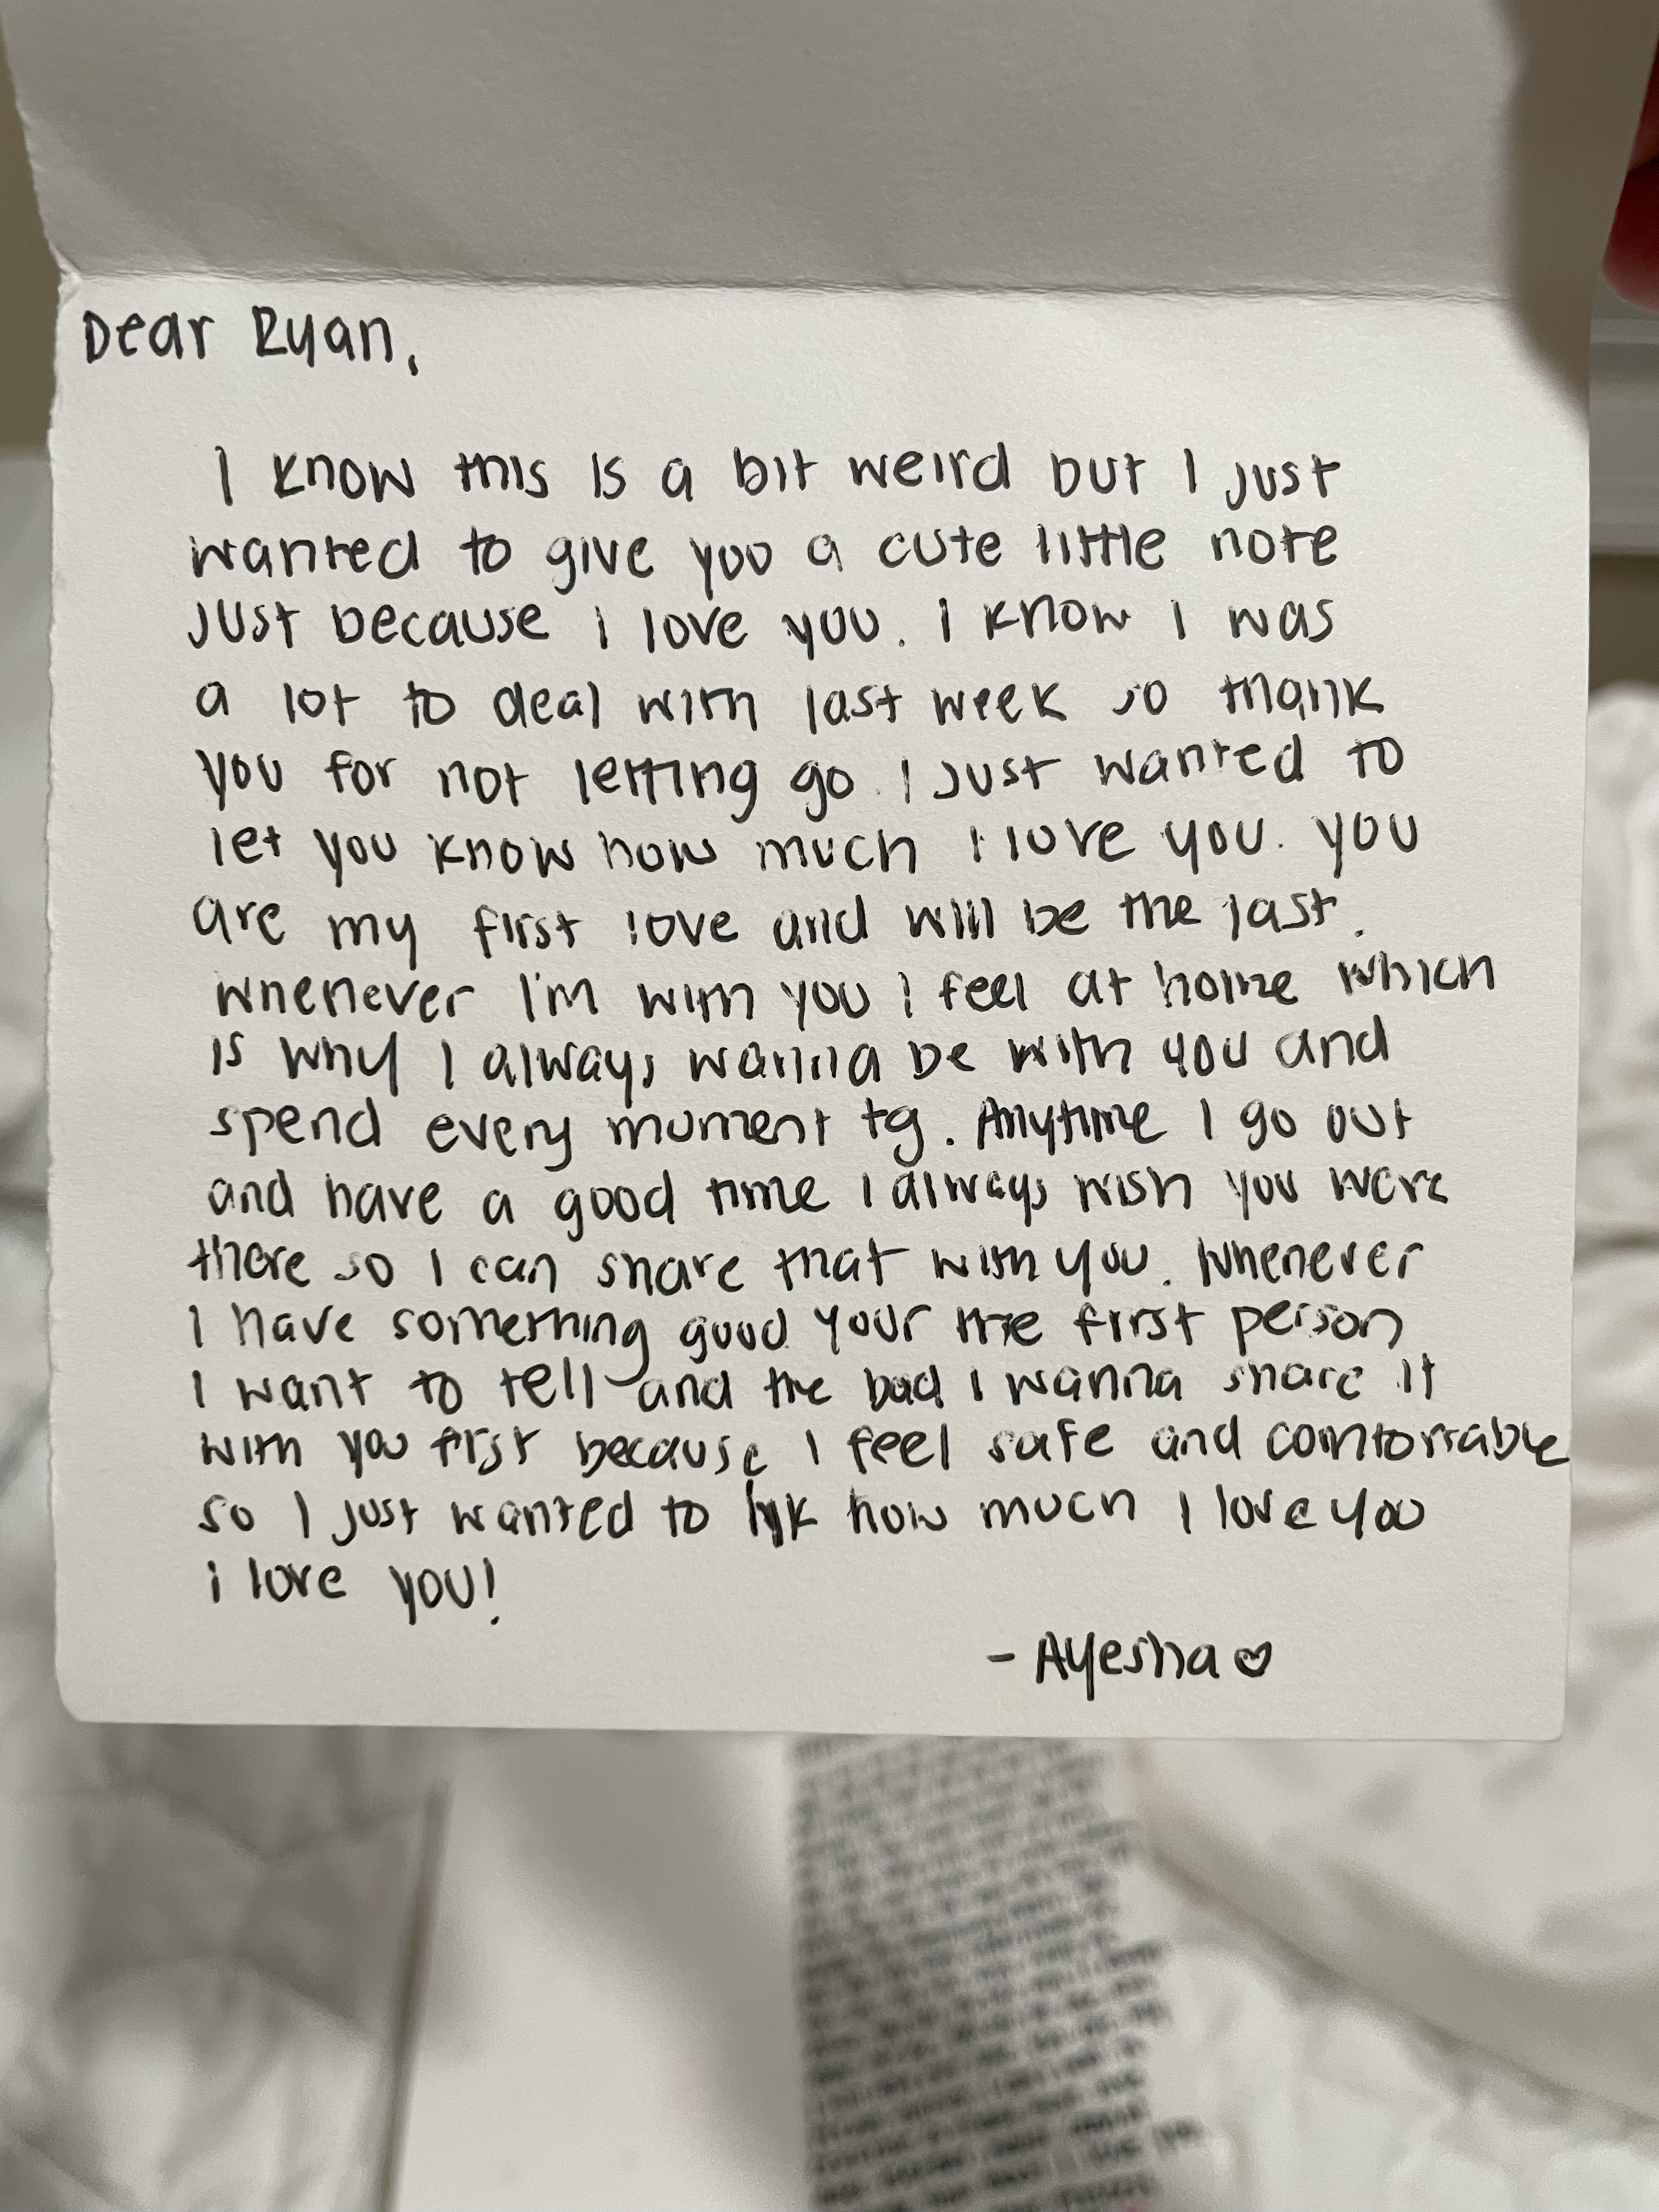 Dear Ryan,
I know this is a bit weird but I just
wanted to give you a cute little note
just because i love you. I know I was
a lot to deal with last week so thank
you for not letting go. I just wanted to
let you know how much I love you. you
are my first love and will be the last.
whenever I'm with you I feel at home which
is why I always wanna be with you and
spend every moment tg. Anytime I go out
and have a good time I always wish you were
there so I can share that with you. Whenever
I have something good your the first person
I want to tell and the bad I wanna share it
with you first because I feel safe and comfortable
so I just wanted to lyk how much I love you
i love you!
- Ayesha ♡